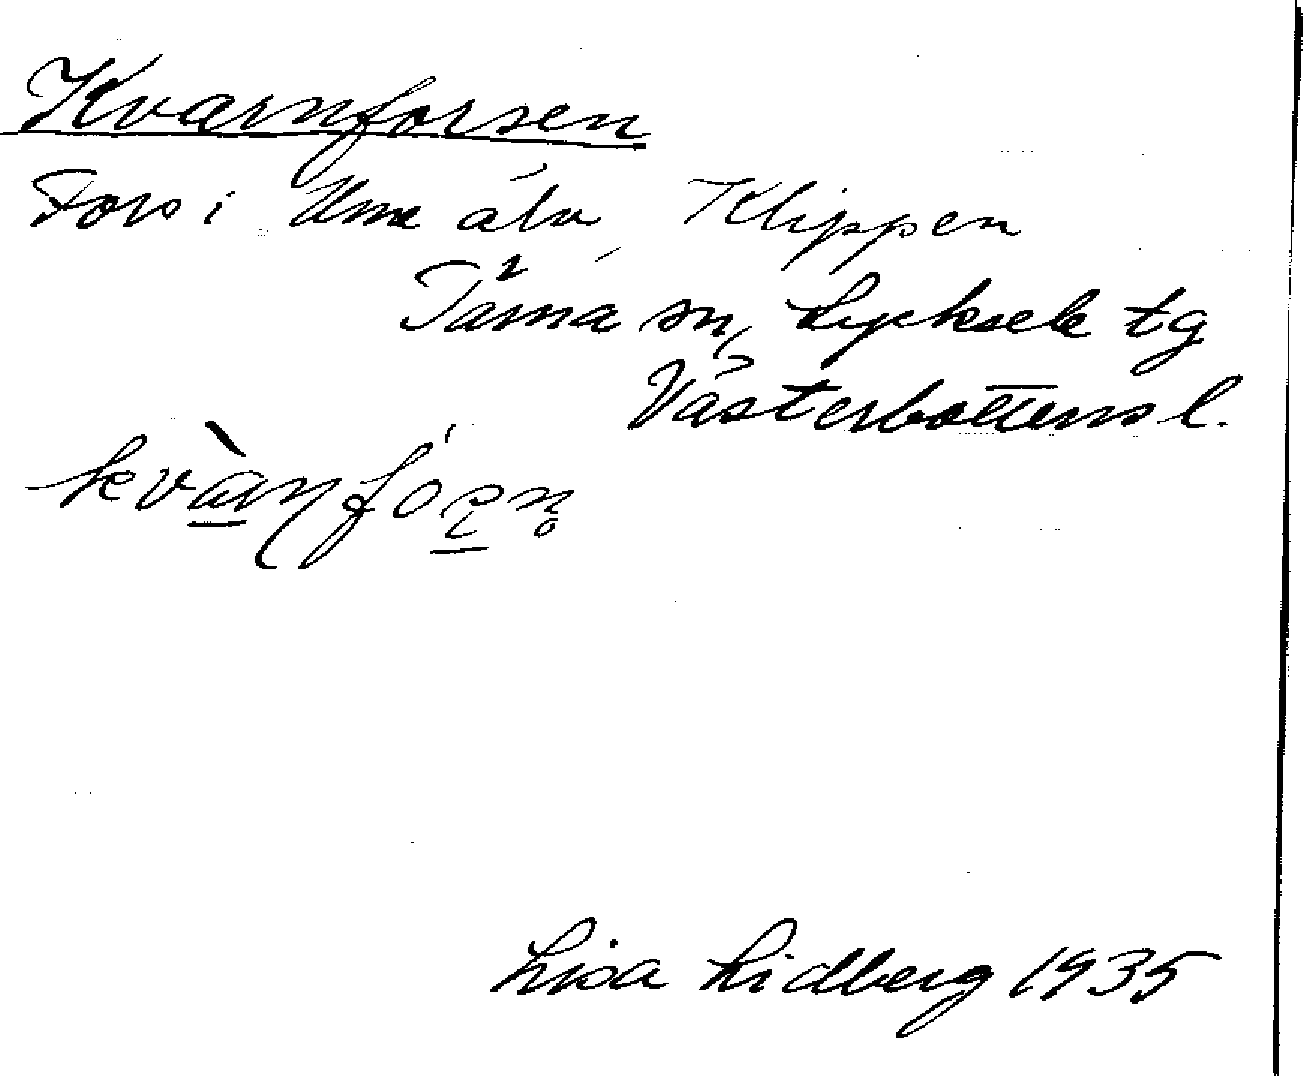 Kvarnforsen
Fors i Ume älv, Klippen
Tärna sn, Lycksele tg
Västerbottens l.
Lisa Lidberg 1935